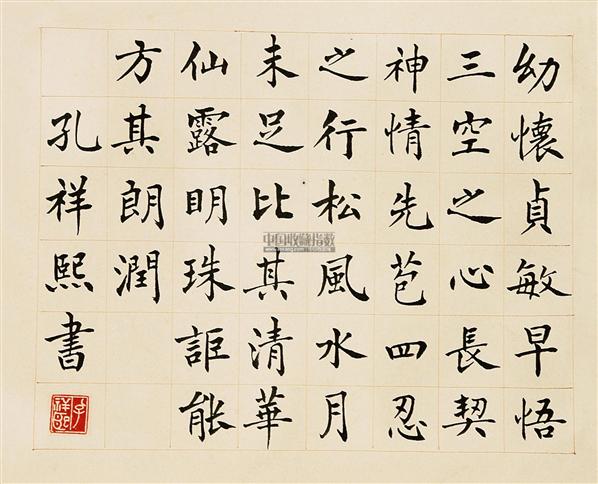 幼懷貞敏早悟
三空之心長契
神情先苞四忍
之行松風水月
未足比其清華
仙露明珠詎能
方其朗潤
孔祥熙書
中国收藏指数